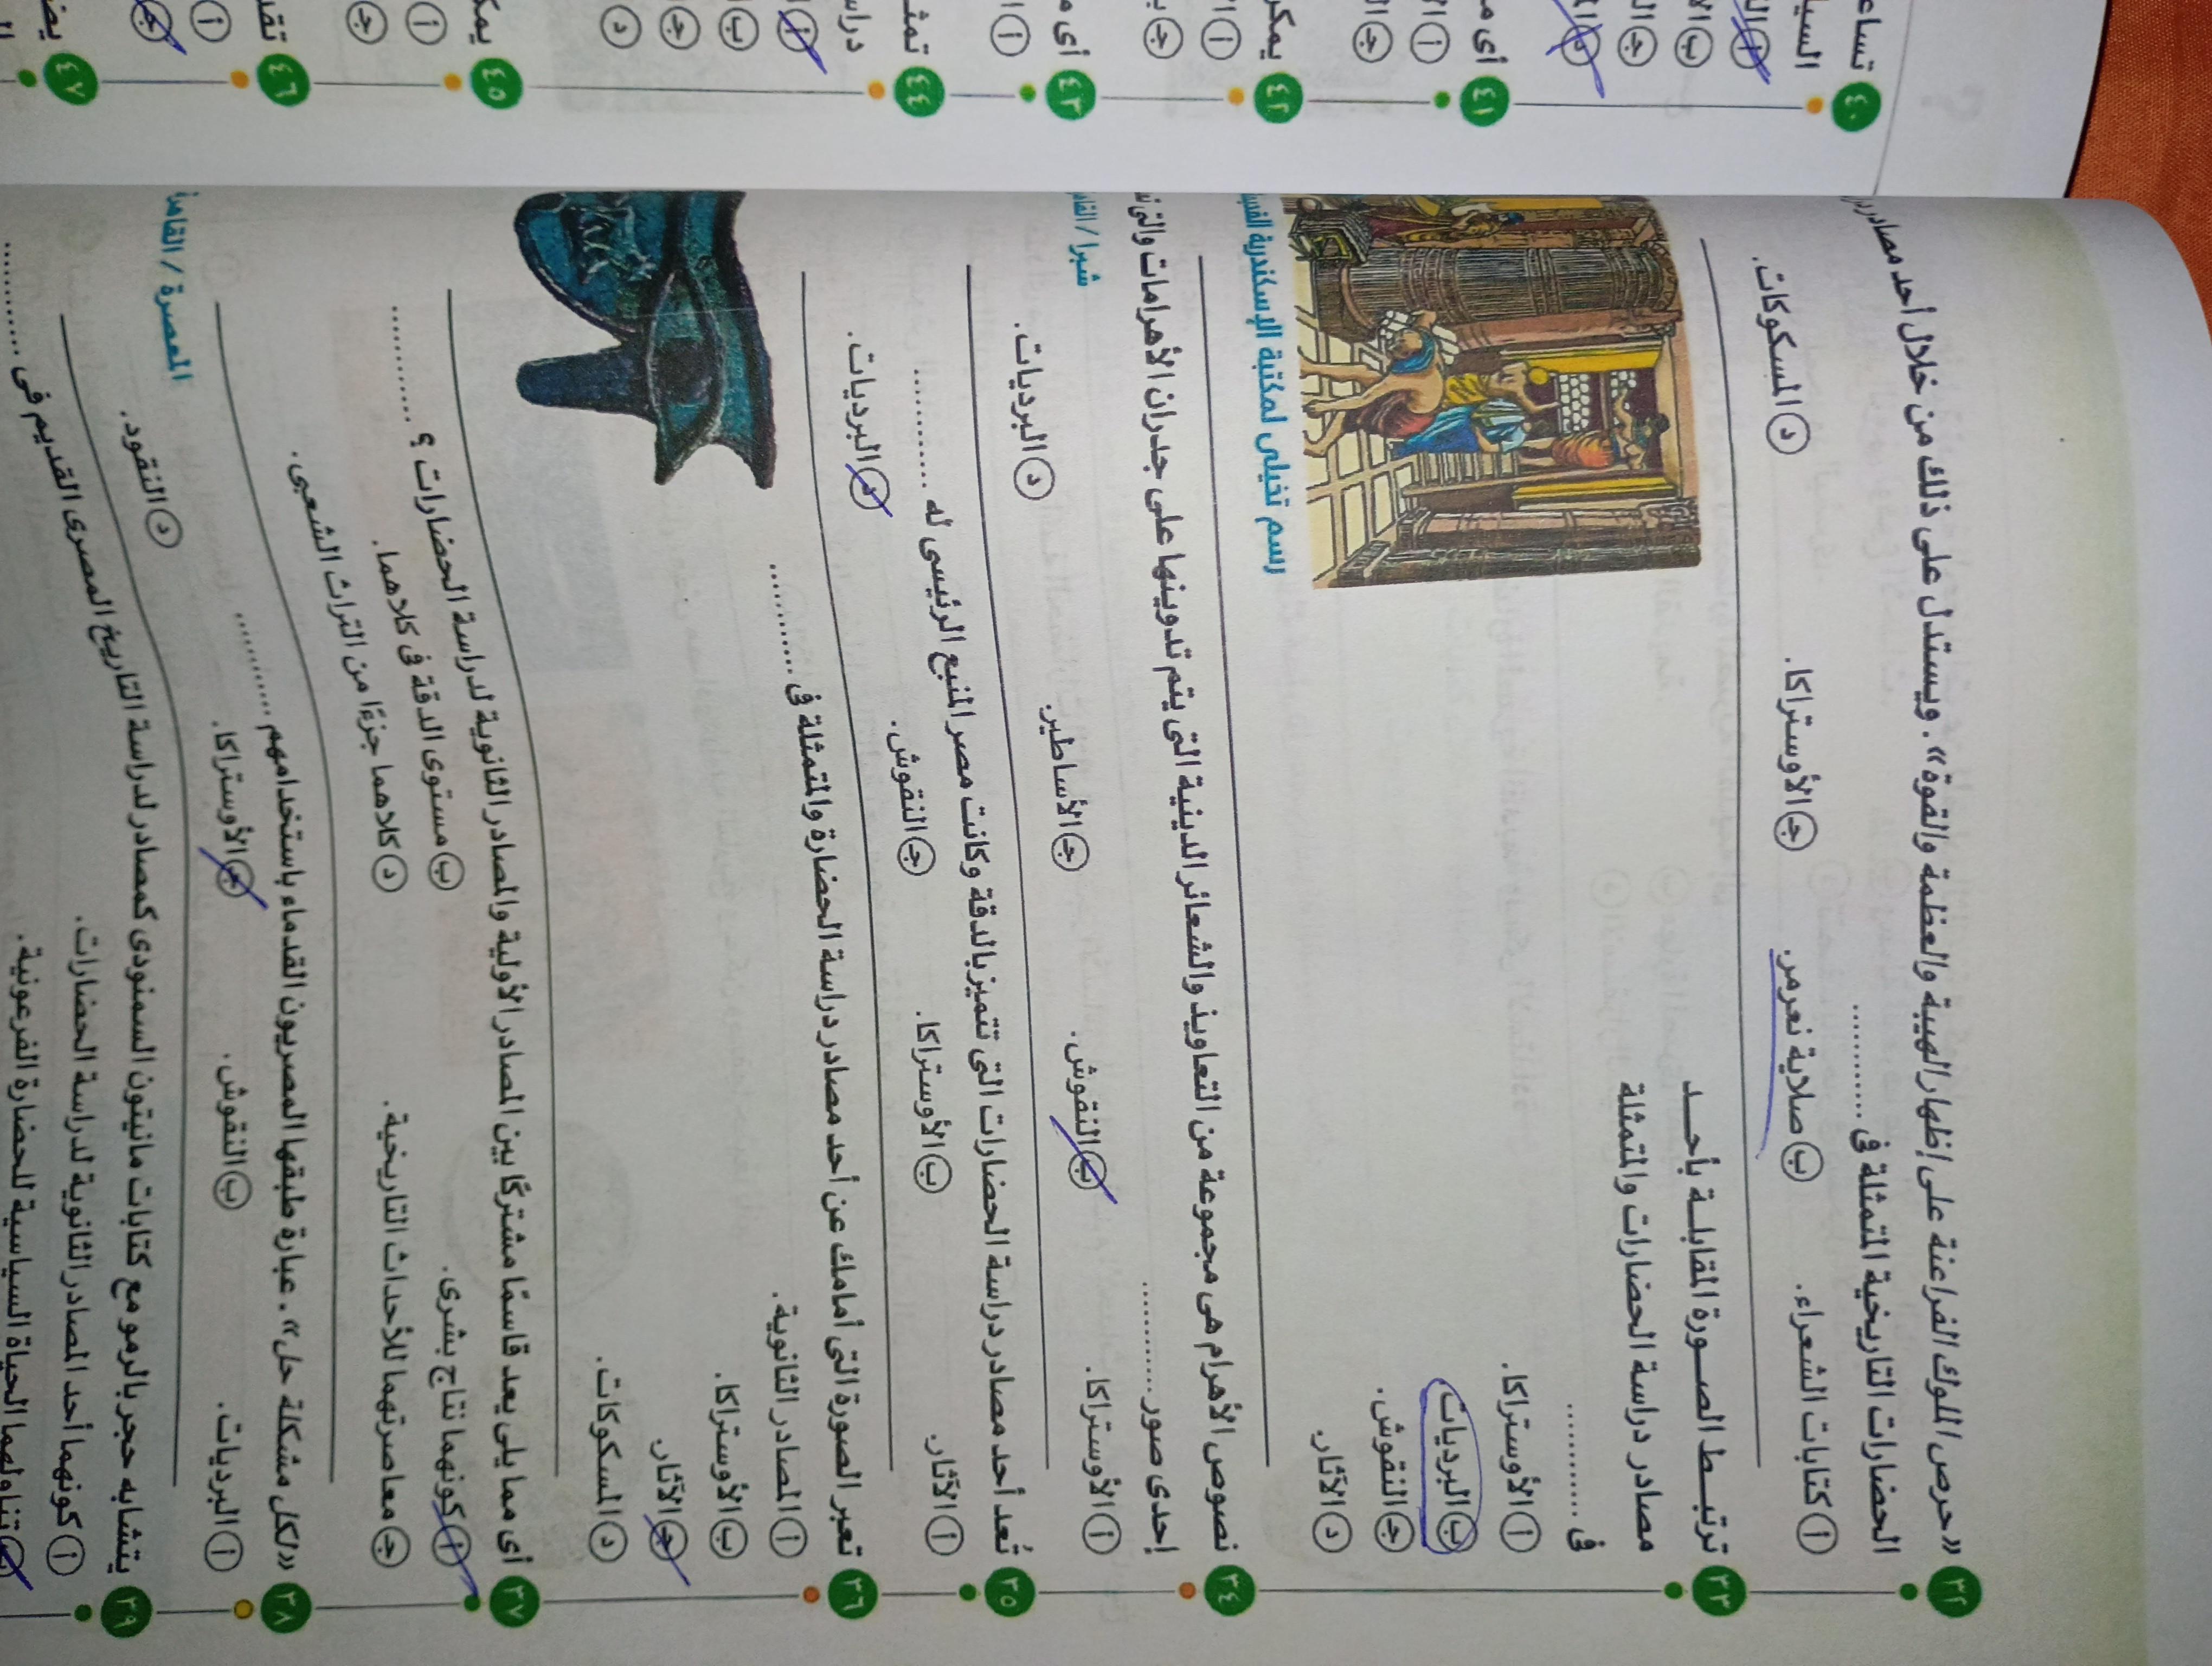 ٣٢ «حرص الملوك الفراعنة على إظهار الهيبة والعظمة والقوة». ويستدل على ذلك من خلال أحد مصادر
الحضارات التاريخية المتمثلة فى ............
أ كتابات الشعراء. ب صلاية نعرمر. ج الأوستراكا. د المسكوكات.
٣٣ ترتبـط الصـورة المقابلـة بأحـد
مصادر دراسة الحضارات والمتمثلة
فى ............
أ الأوستراكا.
ب البرديات.
ج النقوش.
د الآثار.
رسم تخيلى لمكتبة الإسكندرية
٣٤ نصوص الأهرام هى مجموعة من التعاويذ والشعائر الدينية التى يتم تدوينها على جدران الأهرامات والتى
إحدى صور ............
شبرا /
أ الأوستراكا. ب النقوش. ج الأساطير. د البرديات.
٣٥ تُعد أحد مصادر دراسة الحضارات التى تتميز بالدقة وكانت مصر المنبع الرئيسى له ............
أ الآثار. ب الأوستراكا. ج النقوش. د البرديات.
٣٦ تعبر الصورة التى أمامك عن أحد مصادر دراسة الحضارة والمتمثلة فى ............
أ المصادر الثانوية.
ب الأوستراكا.
ج الآثار.
د المسكوكات.
٣٧ أى مما يلى يعد قاسمًا مشتركًا بين المصادر الأولية والمصادر الثانوية لدراسة الحضارات ؟ ............
أ كونهما نتاج بشرى. ب مستوى الدقة فى كلاهما.
ج معاصرتهما للأحداث التاريخية. د كلاهما جزءًا من التراث الشعبى.
٣٨ «لكل مشكلة حل». عبارة طبقها المصريون القدماء باستخدامهم ............
أ البرديات. ب النقوش. ج الأوستراكا. د النقود.
المعصرة / القاهرة
٣٩ يتشابه حجر بالرمو مع كتابات مانيتون السمنودى كمصادر لدراسة التاريخ المصرى القديم فى ............
أ كونهما أحد المصادر الثانوية لدراسة الحضارات.
ب تناولهما الحياة السياسية للحضارة الفرعونية.
٤٠ تساعد
أ
ب
ج
د
٤١ أى
أ
ج
٤٢ يمكن
أ
ج
٤٣ أى
أ
٤٤
أ
ب
ج
د
٤٥
أ
ج
٤٦
أ
ج
٤٧